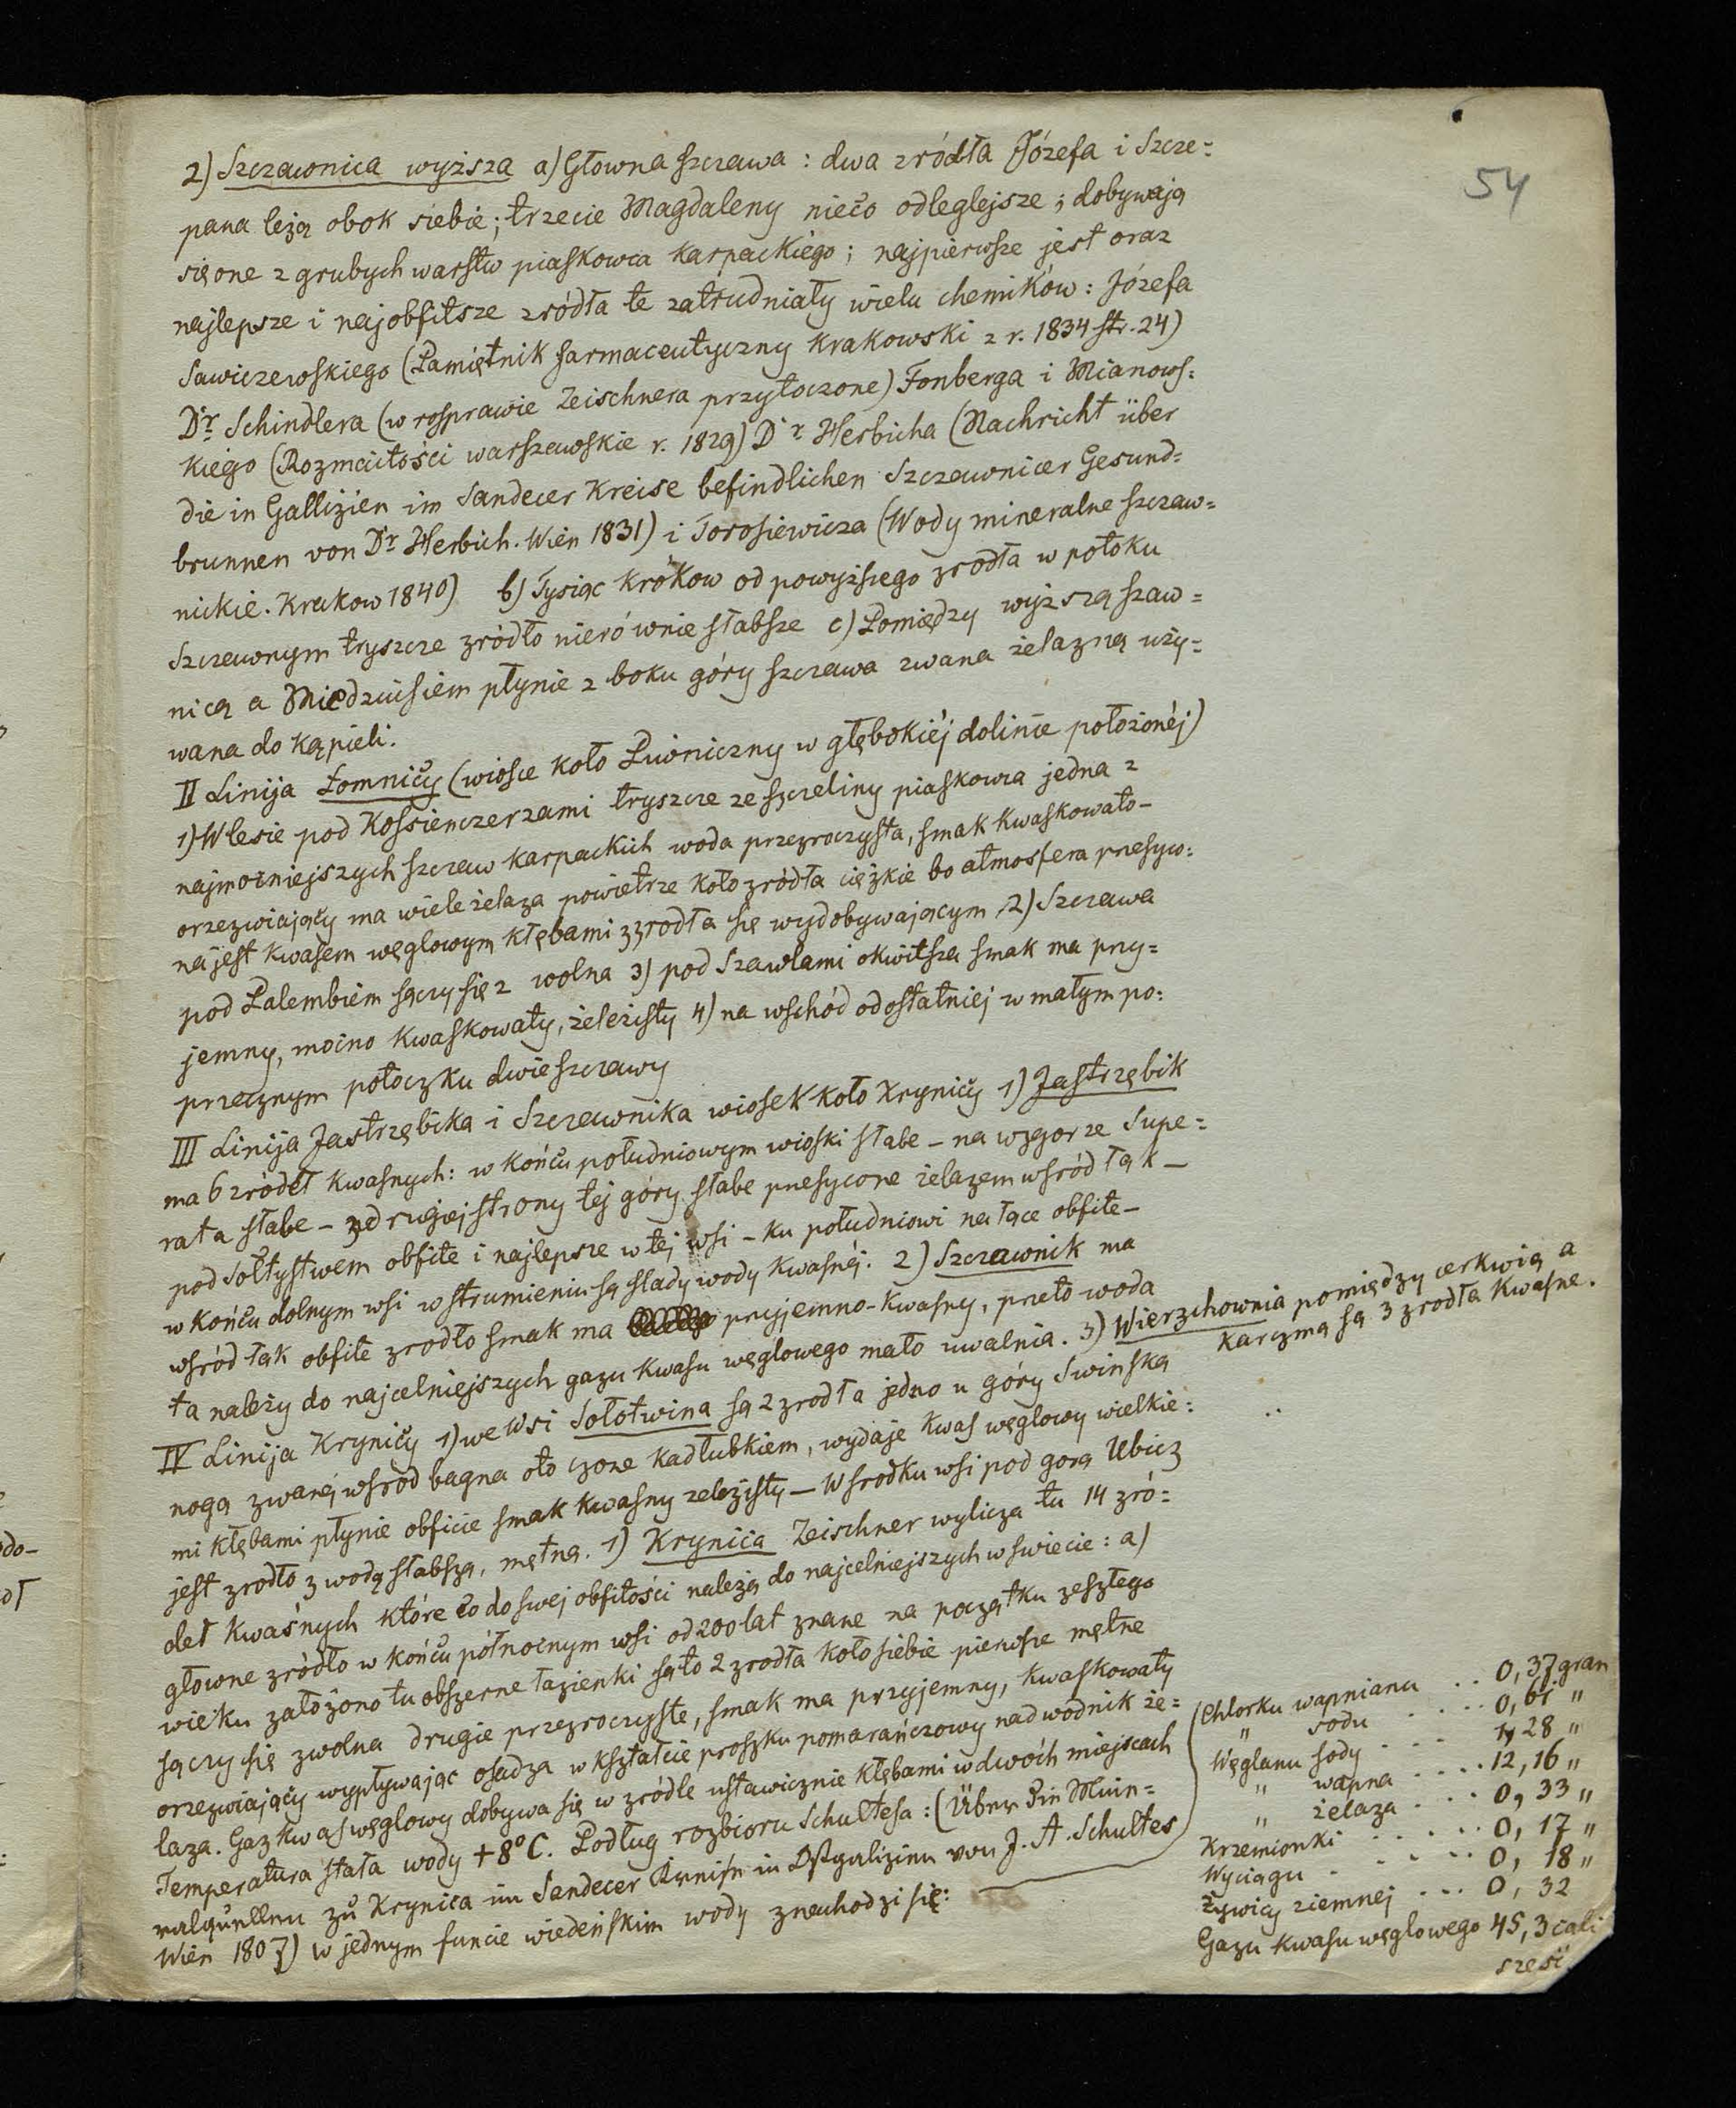 54
2) Szczawnica wyższa a) Głowna szczawa : dwa zródła Józefa i Szcze=
pana leżą obok siebie; trzecie Magdaleny nieco odleglejsze; dobywają
się one z grubych warstw piaskowca karpackiego; najpierwsze jest oraz
najlepsze i najobfitsze zródła te zatrudniały wielu chemików : Józefa
Sawiczewskiego (Pamiętnik farmaceutyczny krakowski z r. 1834 str. 24)
Dr. Schindlera (w rosprawie Zeischnera przytoczone) Fonberga i Mianows=
kiego (Rozmaitości warszawskie r. 1829) Dr Herbicha (Nachricht über
die in Gallizien im Sandecer Kreise befindlichen Szczawnicer Gesund=
brunnen von Dr Herbich. Wien 1831) i Torosiewicza (Wody mineralne szczaw=
nickie. Krakow 1840) b) Tysiąc krokow od powyższego zrodła w potoku
Szczawnym tryszcze zródło nierównie słabsze c) Pomiędzy wyższą szaw=
nicą a Miedziusiem płynie z boku góry szczawa zwana żelazną uży=
wana do kąpieli.
II Linija Łomnicy (wiosce koło Piwniczny w głębokiéj dolinie położonéj)
1) W lesie pod Kossienczerzami tryszcze ze szczeliny piaskowca jedna z
najmocniejszych szczaw karpackich woda przezroczysta, smak kwaskowato-
orzezwiający ma wiele żelaza powietrze koło zródła ciężkie bo atmosfera przesyco=
na jest kwasem węglowym kłębami z zrodła się wydobywającym 2) Szczawa
pod Palembiem sączy się z wolna 3) pod Szawlami okwitsza smak ma przy=
jemny, mocno kwaskowaty, żeleźisty 4) na wschód od ostatniej w małym po=
przecznym potoczku dwie szczawy
III Linija Jastrzębika i Szczawnika wiosek koło Krynicy 1) Jastrzębik
ma 6 zródeł kwasnych: w końcu południowym wioski słabe – na wzgorze Supe=
rata słabe – z drugiej strony tej góry słabe przesycone żelazem wsród łąk –
pod Sołtystwem obfite i najlepsze w tej wsi – ku południowi na łące obfite –
w końcu dolnym wsi w strumieniu są slady wody kwasnéj. 2) Szczawnik ma
wsród łąk obfite zrodło smak ma przyjemno-kwasny, przeto woda
ta należy do najcelniejszych gazu kwasu węglowego mało uwalnia. 3) Wierzchownia pomiędzy cerkwią a
karczmą są 3 zrodła kwasne.
IV Linija Krynicy 1) we wsi Sołotwina są 2 zrodła jedno u góry Swinska
nogą zwanéj wsród bagna otoczone kadłubkiem, wydaje kwas węglowy wielkie=
mi kłębami płynie obficie smak kwasny zelezisty – W srodku wsi pod gorą Ubicz
jest zrodło z wodą słabszą, mętną. 1) Krynica Zeischner wylicza tu 14 zró=
deł kwaśnych które co do swej obfitości należą do najcelniejszych w swiecie : a)
głowne zródło w końcu północnym wsi od 200 lat znane na początku zeszłego
wieku założono tu obszerne łazienki są to 2 zrodła koło siebie pierwsze mętne
sączy się zwolna drugie przezroczyste, smak ma przyjemny, kwaskowaty
orzezwiający wypływając osadza w kształcie proszku pomarańczowy nadwodnik że=
laza. Gaz kwas węglowy dobywa się w zródle ustawicznie kłębami w dwóch miejscach
Temperatura stała wody +8° C. Podług rozbioru Schultesa : (Über die Min=
ralquellen zu Krynica im Sandecer Kreise in Ostgalizien von J. A. Schultes
Wien 1807) w jednym funcie wiedeńskim wody znachodzi się:
Chlorku wapnianu . . 0,37 gran
" sodu . . . . 0,61 "
Węglanu sody . . . . 1,28 "
" wapna . . . . 12,16 "
" żelaza . . . . 0,33 "
Krzemionki . . . . . . 0,17 "
Wyciągu . . . . . . 0,18 "
Żywicy ziemnej . . . 0,32
Gazu kwasu węglowego 45,3 cali
sześć.